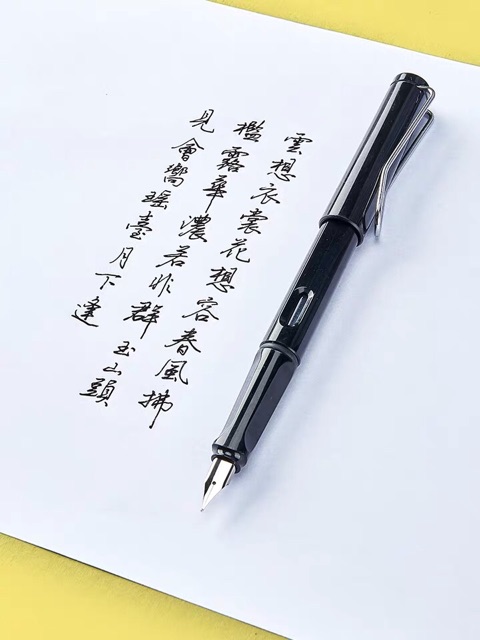 雲想衣裳花想容春風拂
檻露華濃若非群玉山頭
見會嚮瑤臺月下逢